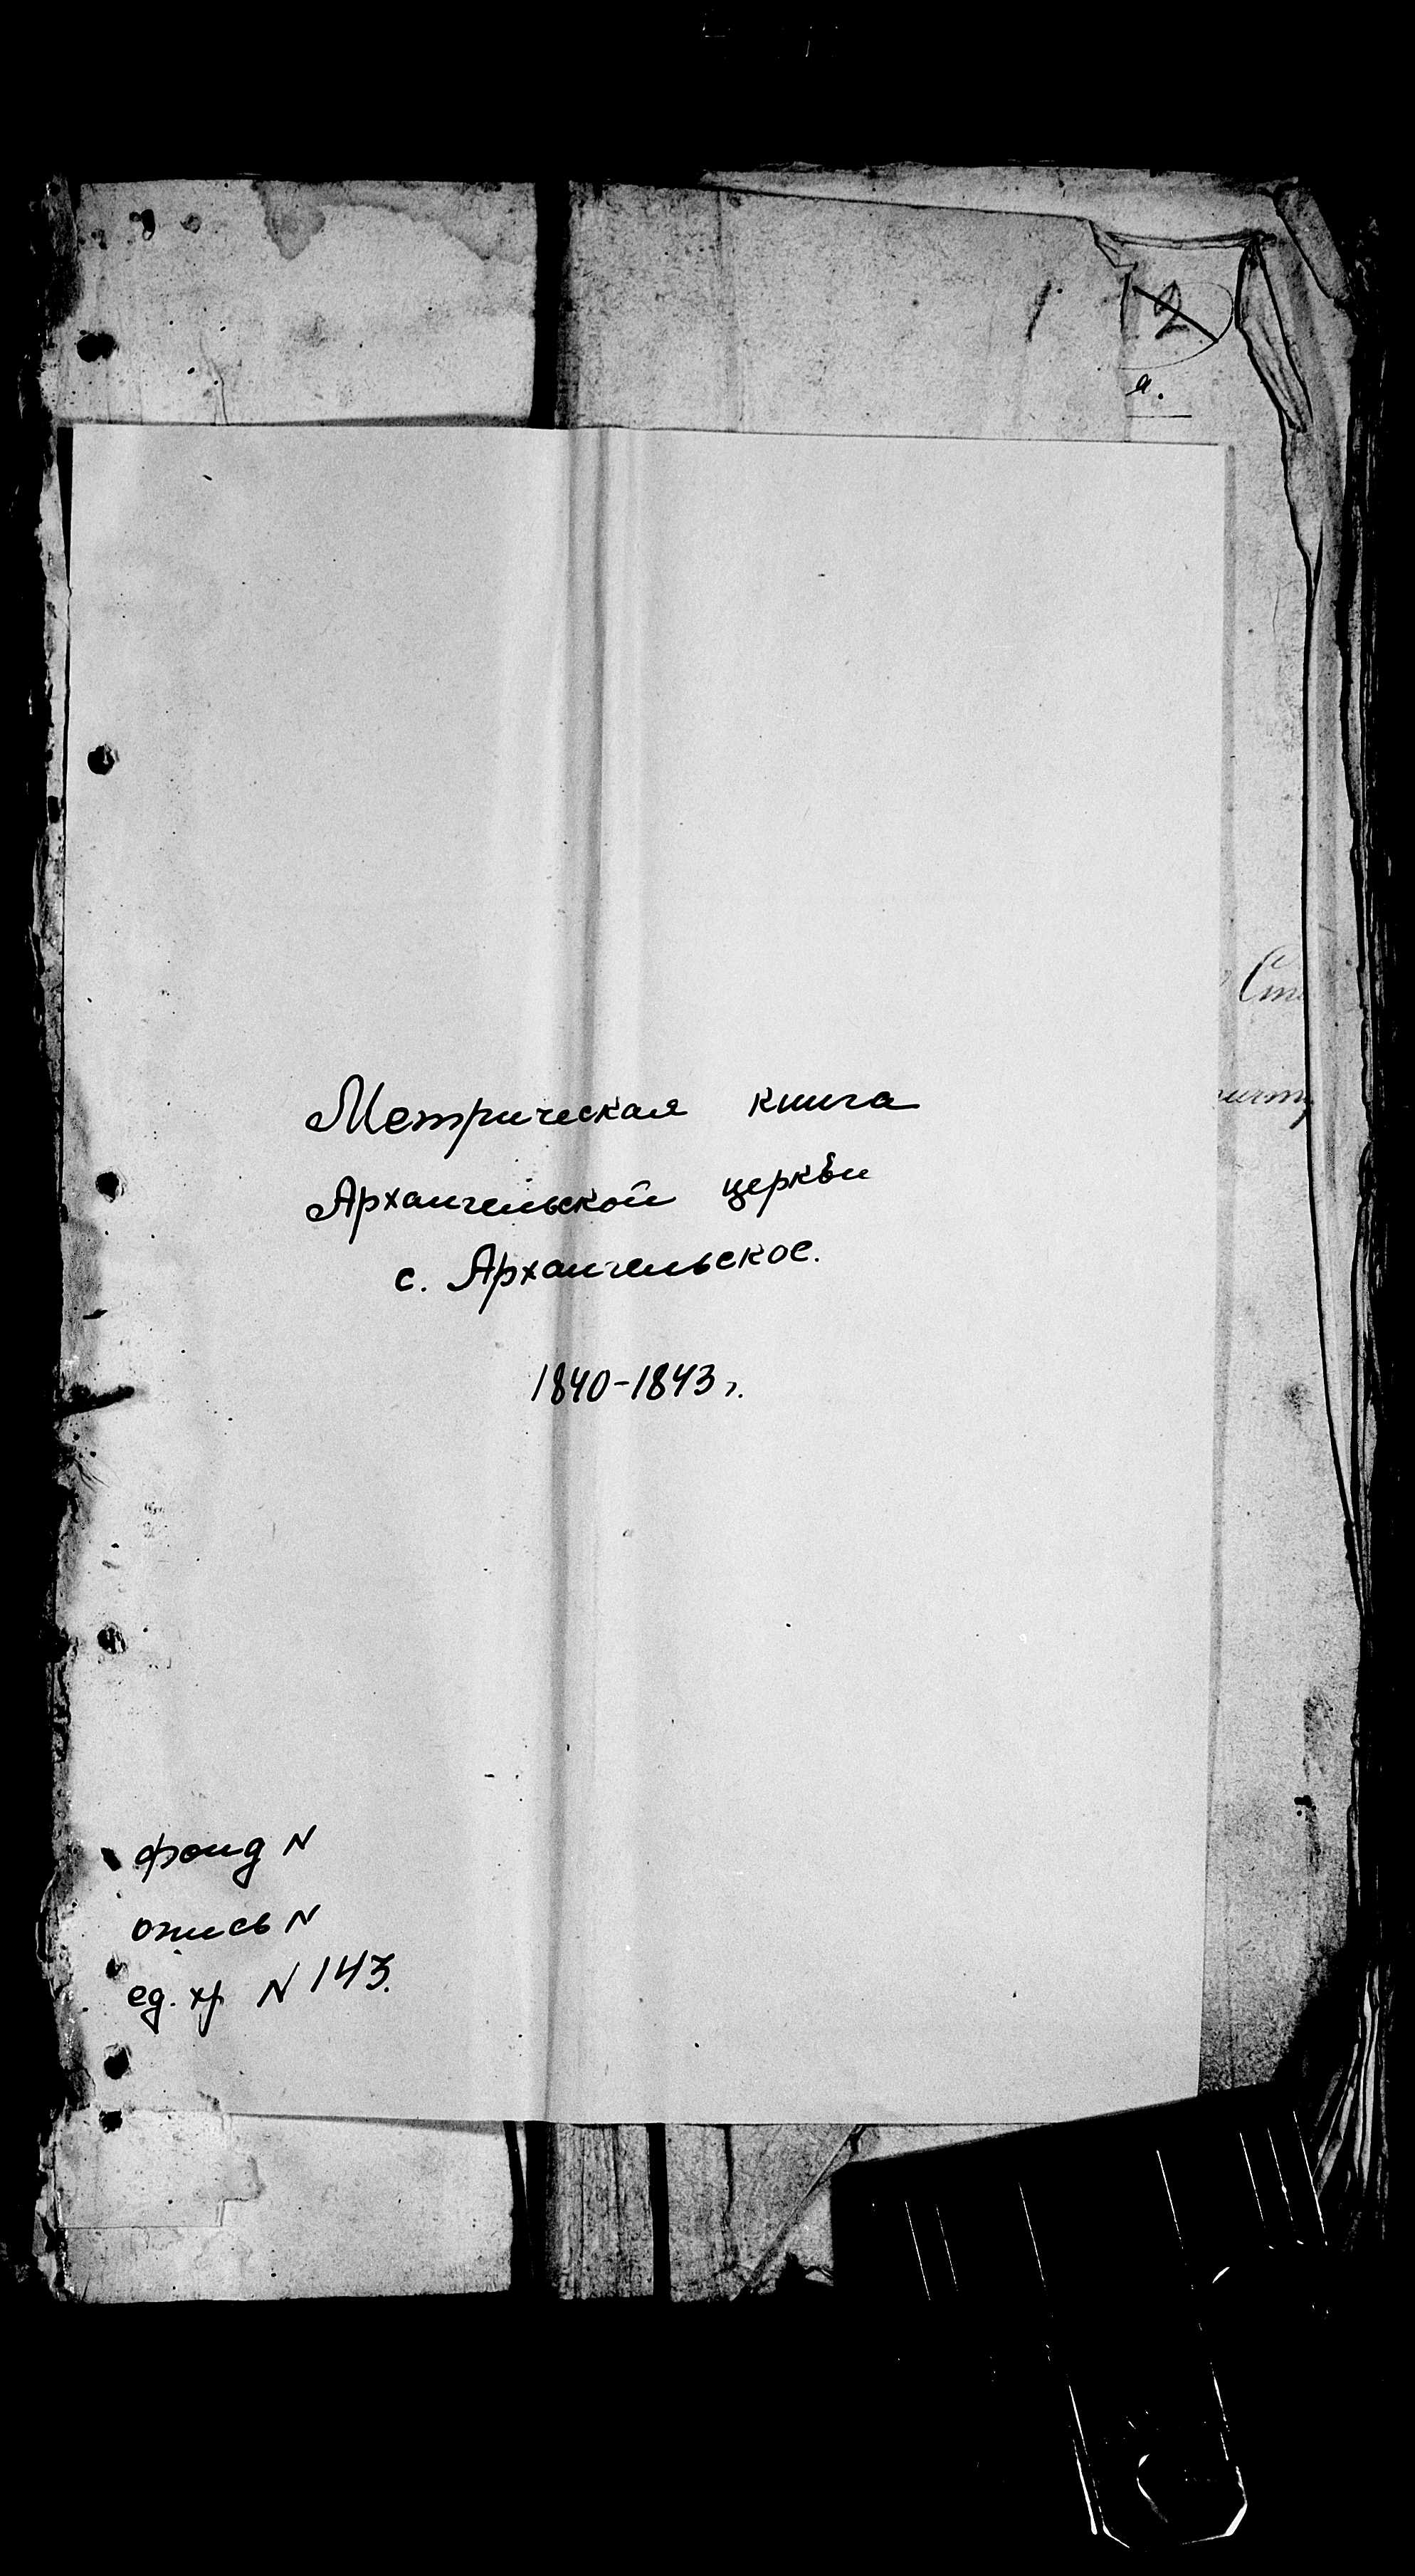 1
2
а.
Метрическая книга
Архангельской церкви
с. Архангельское.
1840-1843 г.
фонд N
опись N
ед. хр N 143.